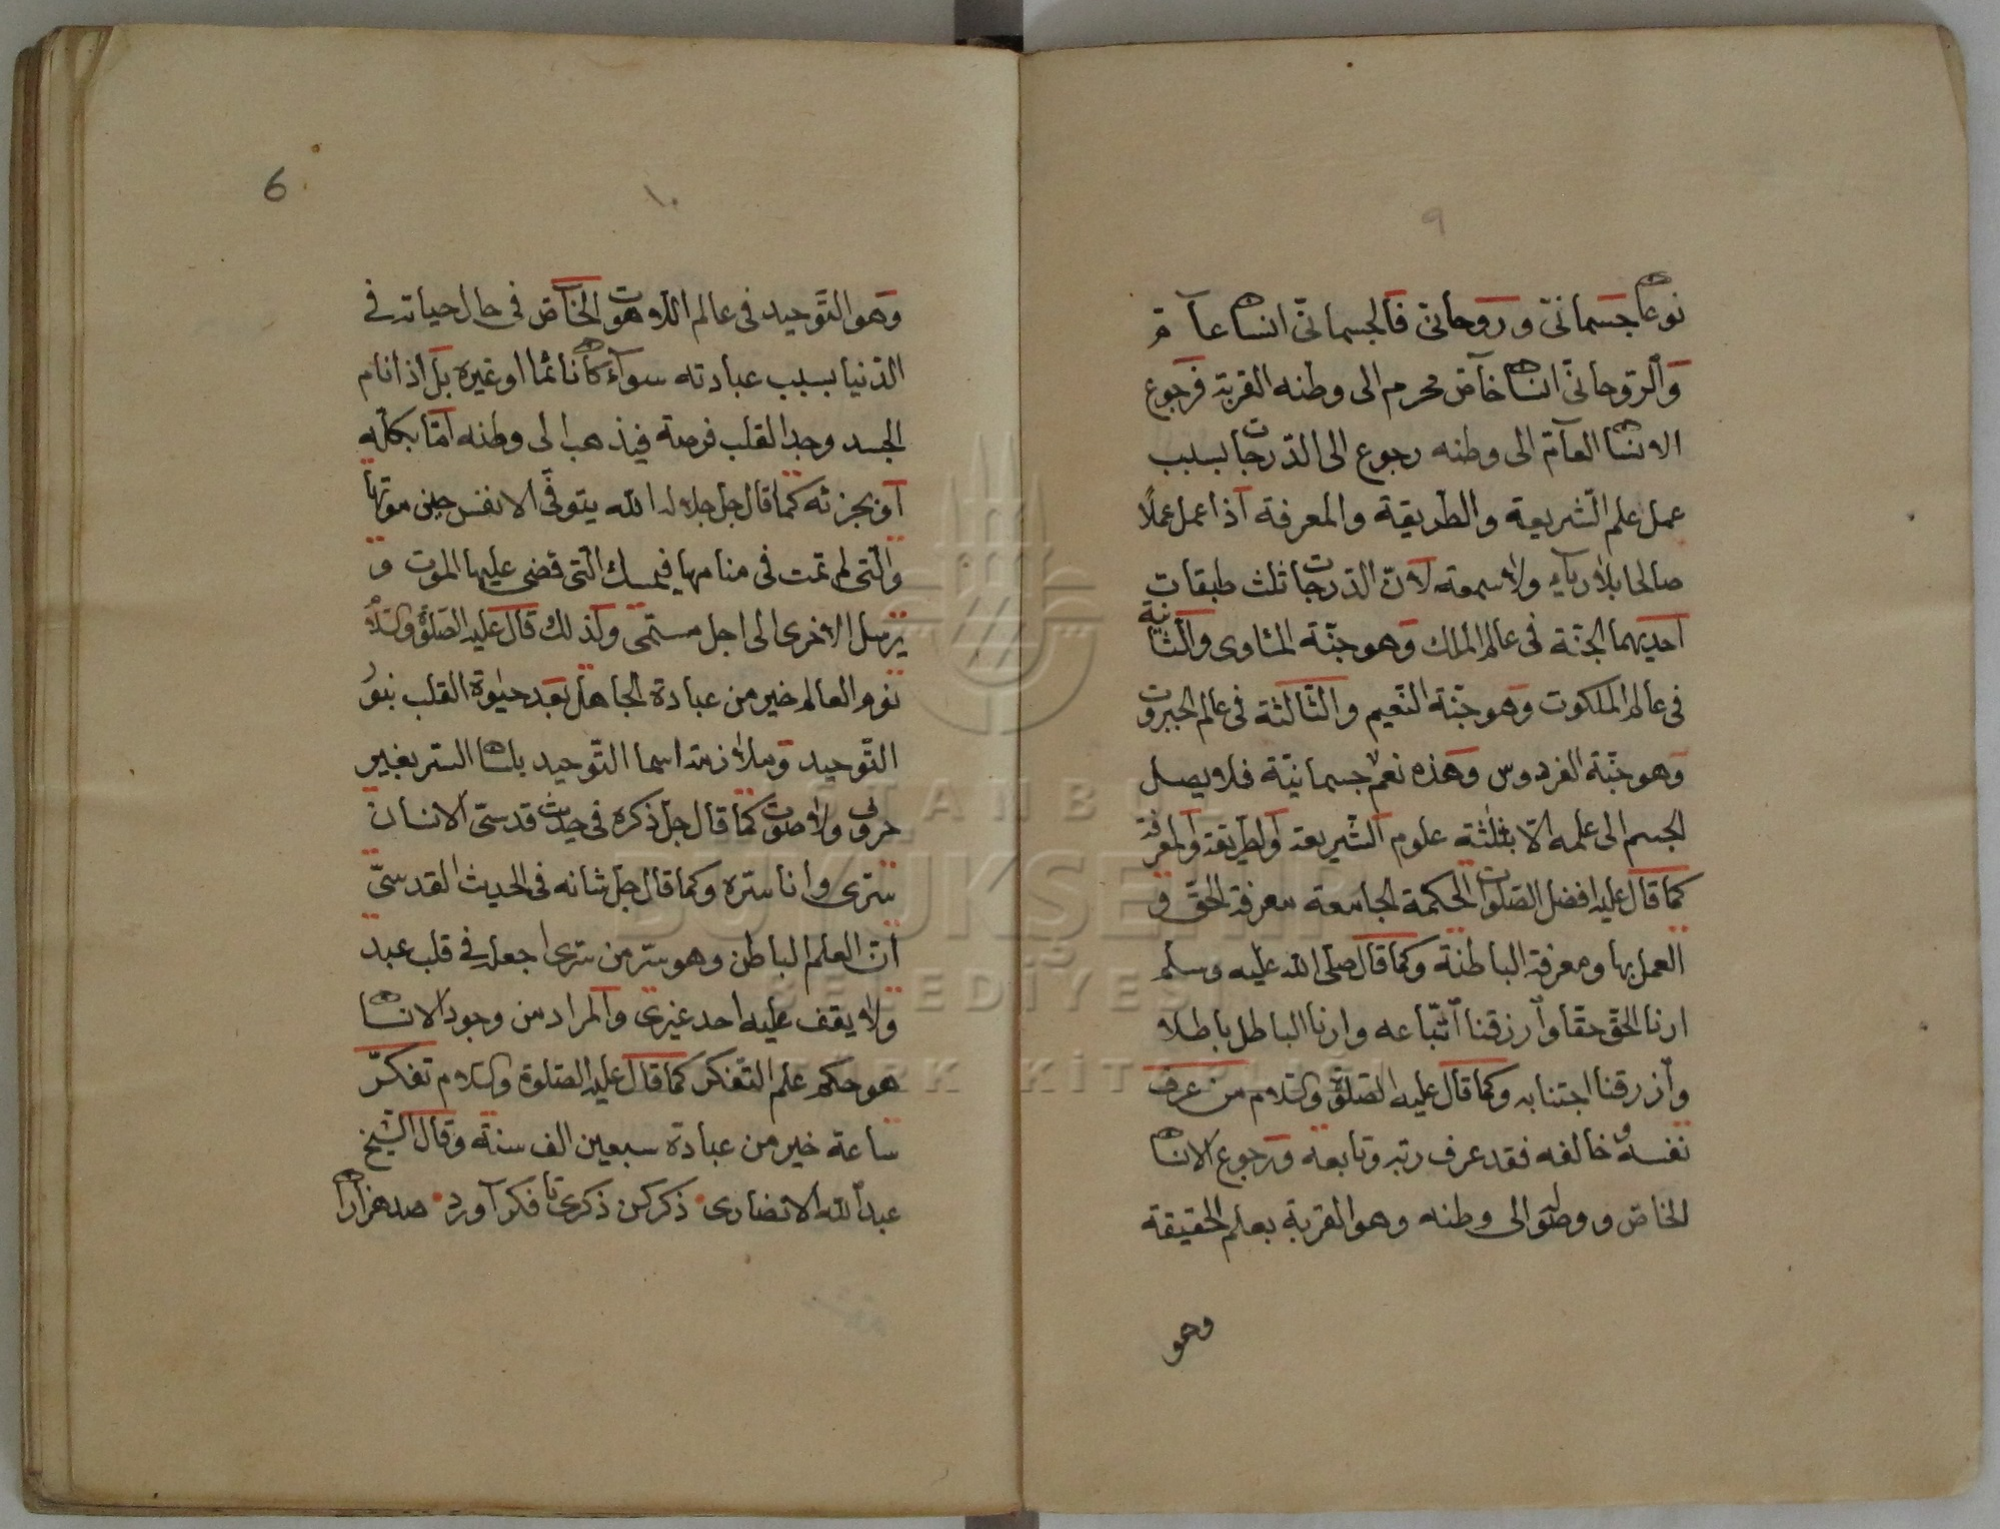 ٩
نوعان جسمانىّ وروحانىّ فالجسمانىّ انسان عآمّ
والرّوحانىّ انسان خاصّ محرم الى وطنه القربة فرجوع
الانسان العآمّ الى وطنه رجوع الى الدّرجات بسبب
عمل علم الشّريعة والطّريقة والمعرفة اذا عمل عملًا
صالحا بلا رياء ولا سمعة لانّ الدّرجات ثلث طبقات
احديهما الجنّة فى عالم الملك وهو جنّة المئاوى والثّانية
فى عالم الملكوت وهو جنّة النّعيم والثّالثة فى عالم الجبروت
وهو جنّة الفردوس وهذه نعم جسمانيّة فلا يصل
الجسم الى علمه الّا بثلثة علوم الشّريعة والطريقة والمعرفة
كما قال عليه افضل الصّلوات الحكمة الجامعة معرفة الحقّ و
العمل بها ومعرفة الباطنة وكما قال صلّى الله عليه وسلم
ارنا الحقّ حقّا وارزقنا اتّباعه وارنا الباطل باطلا
وارزقنا اجتنابه وكما قال عليه الصّلوة والسّلام من عرف
نفسه وخالفه فقد عرف ربّه وتابعه ورجوع الانسان
الخاصّ ووصوله الى وطنه وهو القربة بعلم الحقيقة
وهو
١٠
6
وهو التّوحيد فى عالم اللّاهوت الخآصّ فى حال حياته فى
الدّنيا بسبب عبادته سوآء كان نائما او غيره بل اذا نام
الجسد وجد القلب فرصة فيذهب الى وطنه امّا بكلّه
او بجزئه كما قال جلّ جلاله الله يتوفّى الانفس حين موتها
والّتى لم تمت فى منامها فيمسك الّتى قضى عليها الموت و
يرسل الاخرى الى اجل مسمّى ولذلك قال عليه الصّلوة والسّلام
نوم العالم خير من عبادة الجاهل بعد حيوة القلب بنور
التّوحيد وملازمة اسما التّوحيد بلسان السّر بغير
حروف ولا صوت كما قال جلّ ذكره فى حديث قدسىّ الانسان
سرّى وانا سرّه وكما قال جلّ شانه فى الحديث القدسىّ
انّ العلم الباطن وهو سرّ من سرّى اجعله فى قلب عبد
ولا يقف عليه احد غيرى والمراد من وجود الانسان
هو حكم علم التّفكر كما قال عليه الصّلوة والسّلام تفكّر
ساعة خير من عبادة سبعين الف سنة وقال الشّيخ
عبد الله الانصارى ذكر كن ذكرى تا فكر آورد صد هزاران